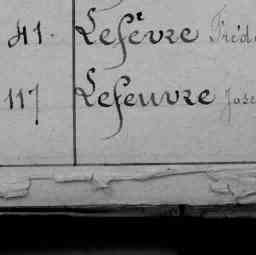 41. Lefèvre Fréd
117 Lefeuvre Jose